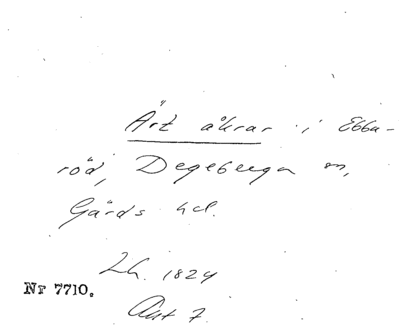 Ärt åkrar i Ebba-
röd, Degeberga sn,
Gärds hd.
Lh. 1824
Nr 7710.
Ant 7